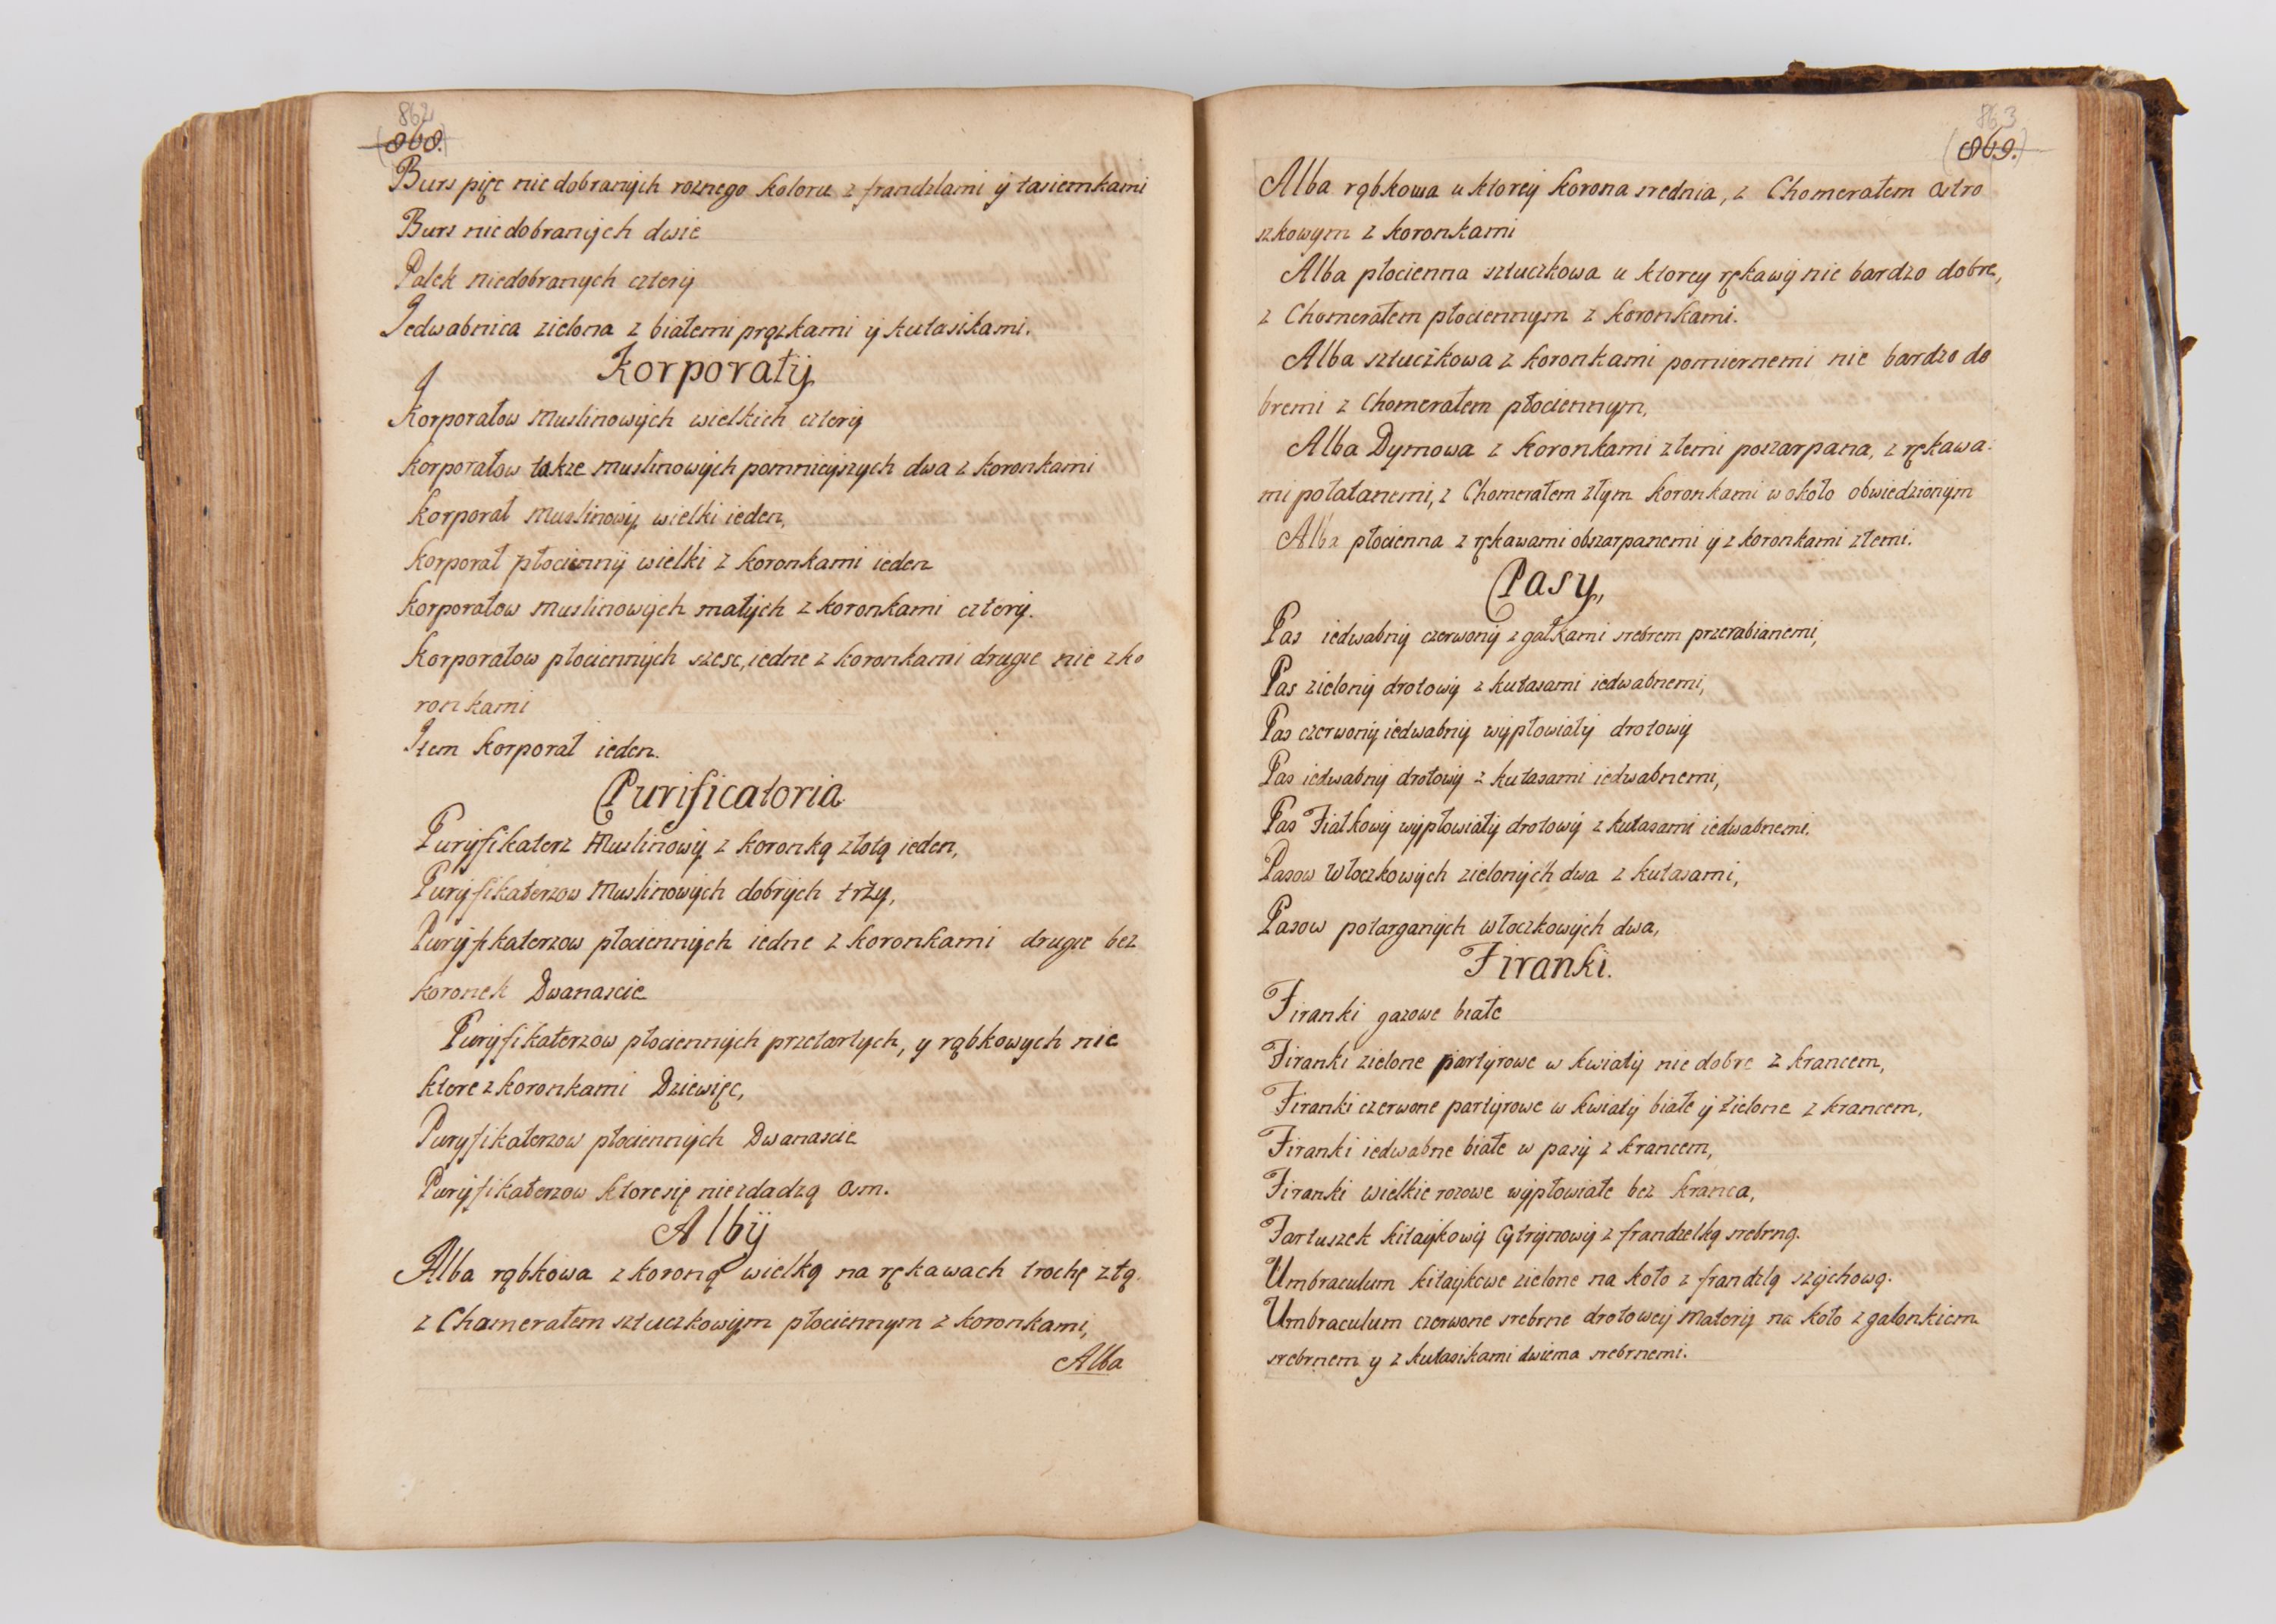 862
(868.)
Burs pięc nie dobranych roznego koloru z frandzlami y tasiemkami
Burs nie dobranych dwie
Palek niedobranych cztery
Jedwabnica zielona z białemi prązkami y kutasikami.
Korporały
Korporałow Muslinowych wielkich cztery
Korporałow takze muslinowych pomnieyszych dwa z koronkami
Korporał Muslinowy wielki ieden,
Korporał płocienny wielki z koronkami ieden
Korporałow muslinowych małych z koronkami cztery.
Korporałow płociennych szesc, iedne z koronkami drugie nie z ko
ronkami
Item Korporał ieden.
Purificatoria
Puryfikaterz Muslinowy z koronką złotą ieden,
Puryfikaterzow Muslinowych dobrych trzy,
Puryfikaterzow płociennych iedne z koronkami drugie bez
koronek Dwanascie
Puryfikaterzow płociennych przetartych, y rąbkowych nie
ktore z koronkami Dziewięc,
Puryfikaterzow płociennych Dwanascie
Puryfikaterzow ktore się niezdadzą Osm.
Alby
Alba rąbkowa z koroną wielką na rękawach trochę złą
z Chomerałem sztuczkowym płociennym z koronkami,
Alba
863
(869.)
Alba rąbkowa u ktorey korona srednia, z Chomerałem Ostro
szkowym z koronkami
Alba płocienna sztuczkowa u ktorey rękawy nie bardzo dobre,
z Chomerałem płociennym z koronkami.
Alba sztuczkowa z koronkami pomiernemi nie bardzo do
bremi z Chomerałem płociennym,
Alba Dymowa z koronkami złemi poszarpana, z rękawa:
mi połatanemi, z Chomerałem złym koronkami w około obwiedzionym
Alba płocienna z rękawami obszarpanemi y z koronkami złemi.
Pasy,
Pas iedwabny czerwony z gałkami srebrem przerabianemi,
Pas zielony drotowy z kutasami iedwabnemi,
Pas czerwony iedwabny wypłowiały drotowy
Pas iedwabny drotowy z kutasami iedwabnemi,
Pas Fiałkowy wypłowiały drotowy z kutasami iedwabnemi.
Pasow Włoczkowych zielonych dwa z kutasami,
Pasow potarganych włoczkowych dwa,
Firanki.
Firanki gazowe białe
Firanki zielone partyrowe w kwiaty nie dobre z krancem,
Firanki czerwone partyrowe w kwiaty białe y zielone z krancem,
Firanki iedwabne białe w pasy z krancem,
Firanki wielkie rozowe wypłowiałe bez kranca,
Fartuszek kitaykowy Cytrynowy z frandzelką srebrną.
Umbraculum kitaykowe zielone na koło z frandzlą szychową.
Umbraculum czerwone srebrne drotowey Matery na koło z galonkiem
srebrnem y z kutasikami dwiema srebrnemi.